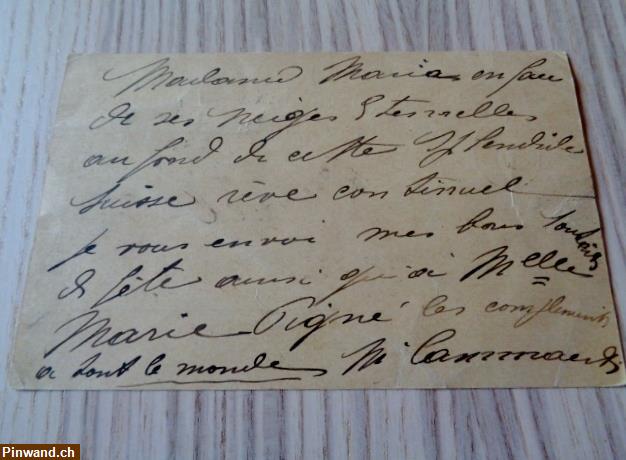 Madame Maria en face
de ses neiges Eternelles
au fond de cette Splendide
Suisse rêve continuel
je vous envoi mes bons souhaits
de fête ainsi qu'à Melle
Marie Pigné les compliments
a tout le monde M
Pinwand.ch